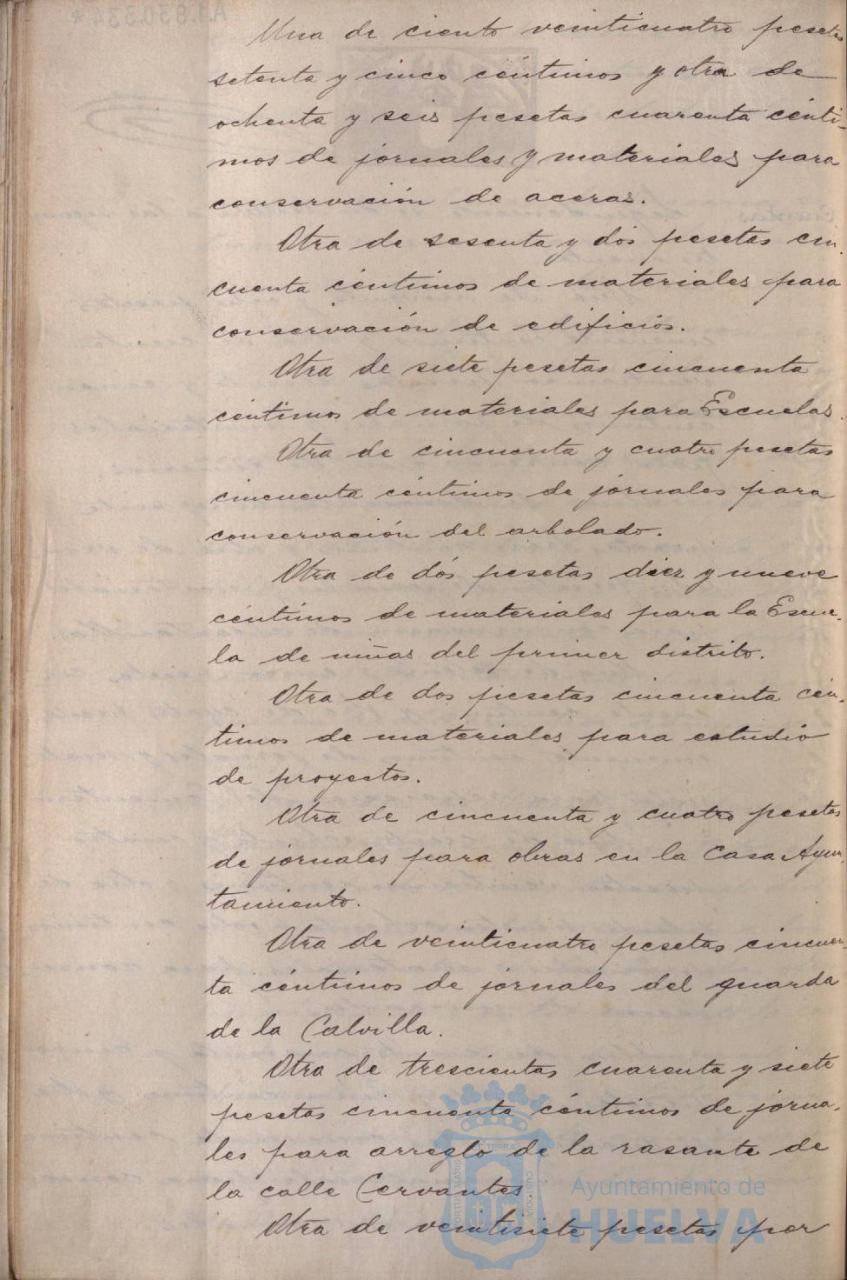 Una de ciento veinticuatro pesetas
setenta y cinco céntimos y otra de
ochenta y seis pesetas cuarenta cénti-
mos de jornales y materiales para
conservación de aceras.
Otra de sesenta y dós pesetas cin-
cuenta céntimos de materiales para
conservación de edificios.
Otra de siete pesetas cincuenta
céntimos de materiales para Escuelas.
Otra de cincuenta y cuatro pesetas
cincuenta céntimos de jornales para
conservación del arbolado.
Otra de dós pesetas diez y nueve
céntimos de materiales para la Escue-
la de niñas del primer distrito.
Otra de dos pesetas cincuenta cén-
timos de materiales para estudio
de proyectos.
Otra de cincuenta y cuatro pesetas
de jornales para obras en la Casa Ayun-
tamiento.
Otra de veinticuatro pesetas cincuen-
ta céntimos de jornales del guarda
de la Calvilla.
Otra de trescientas cuarenta y siete
pesetas cincuenta céntimos de jorna-
les para arreglo de la rasante de
la calle Cervantes
Otra de veintisiete pesetas por
Ayuntamiento de
HUELVA